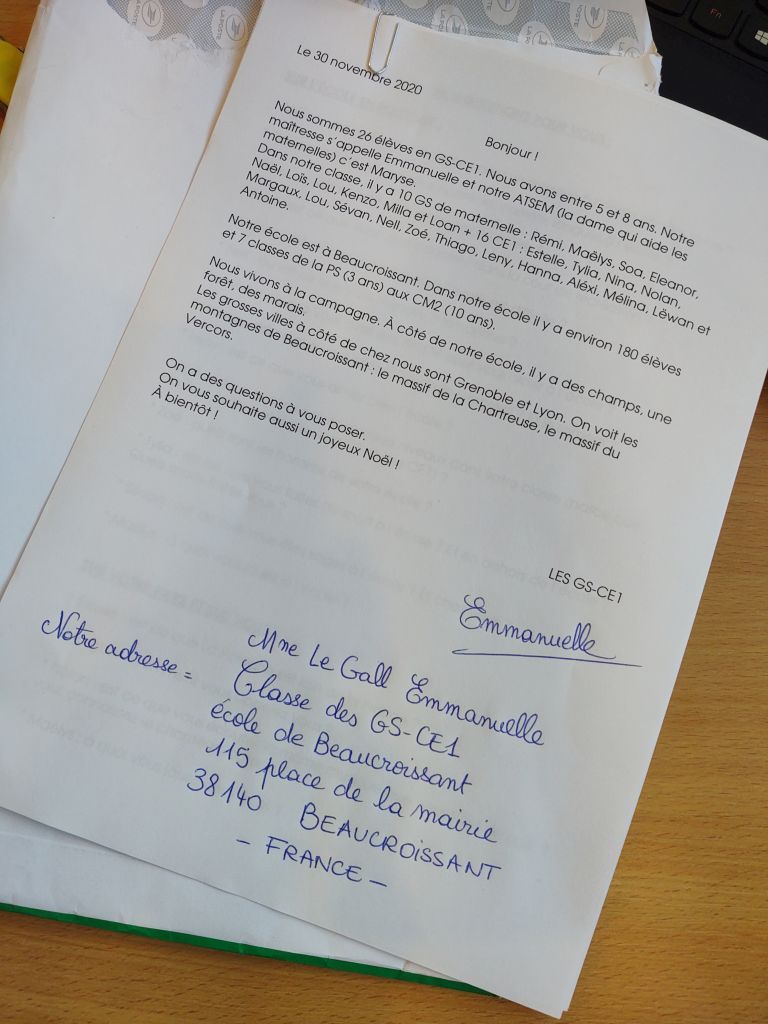 Le 30 novembre 2020
Bonjour !
Nous sommes 26 élèves en GS-CE1. Nous avons entre 5 et 8 ans. Notre
maîtresse s'appelle Emmanuelle et notre ATSEM (la dame qui aide les
maternelles) c'est Maryse.
Dans notre classe, il y a 10 GS de maternelle : Rémi, Maëlys, Soa, Eleanor,
Naël, Loïs, Lou, Kenzo, Milla et Loan + 16 CE1 : Estelle, Tylia, Nina, Nolan,
Margaux, Lou, Sévan, Nell, Zoé, Thiago, Leny, Hanna, Aléxi, Mélina, Lëwan et
Antoine.
Notre école est à Beaucroissant. Dans notre école il y a environ 180 élèves
et 7 classes de la PS (3 ans) aux CM2 (10 ans).
Nous vivons à la campagne. À côté de notre école, il y a des champs, une
forêt, des marais.
Les grosses villes à côté de chez nous sont Grenoble et Lyon. On voit les
montagnes de Beaucroissant : le massif de la Chartreuse, le massif du
Vercors.
On a des questions à vous poser.
On vous souhaite aussi un joyeux Noël !
À bientôt !
LES GS-CE1
Emmanuelle
Notre adresse = Mme Le Gall Emmanuelle
Classe des GS-CE1
école de Beaucroissant
115 place de la mairie
38140 BEAUCROISSANT
- FRANCE -
Fn